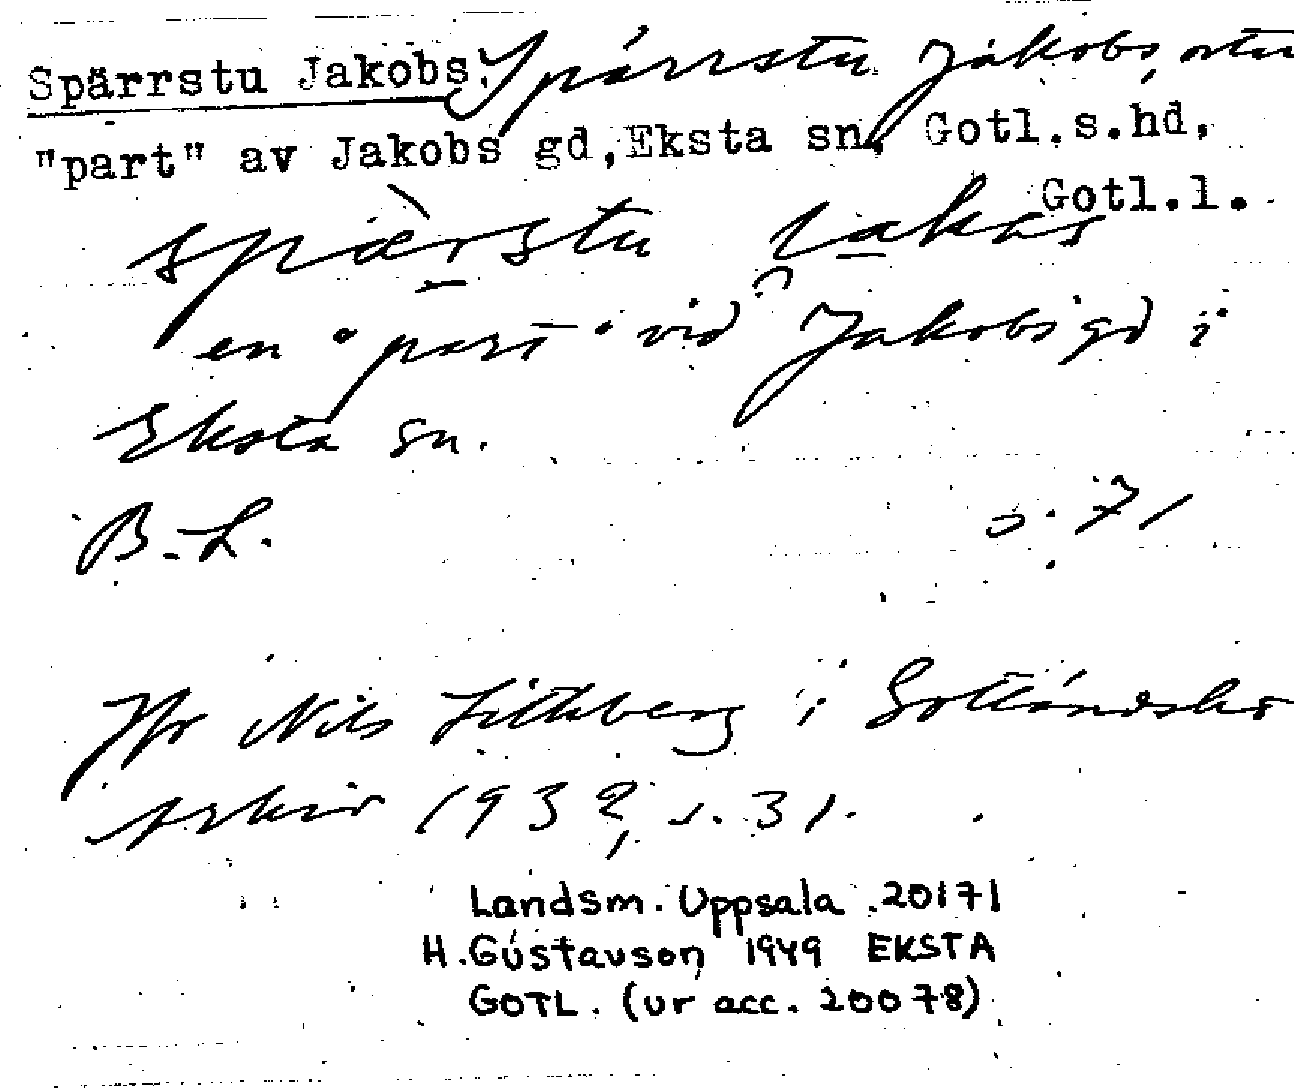 Spärrstu Jakobs. Spärrstu Jakobs,
"part" av Jakobs gd, Eksta sn, Gotl.s.hd,
Gotl.l.
spærstu
en "part" vid Jakobs gd i
Eksta sn.
B.L. s. 71
Jfr Nils Lithberg i Gotländskt
Arkiv 1932, s. 31.
Landsm. Uppsala 20171
H. Gustavson 1949 EKSTA
GOTL. (ur acc. 20078)